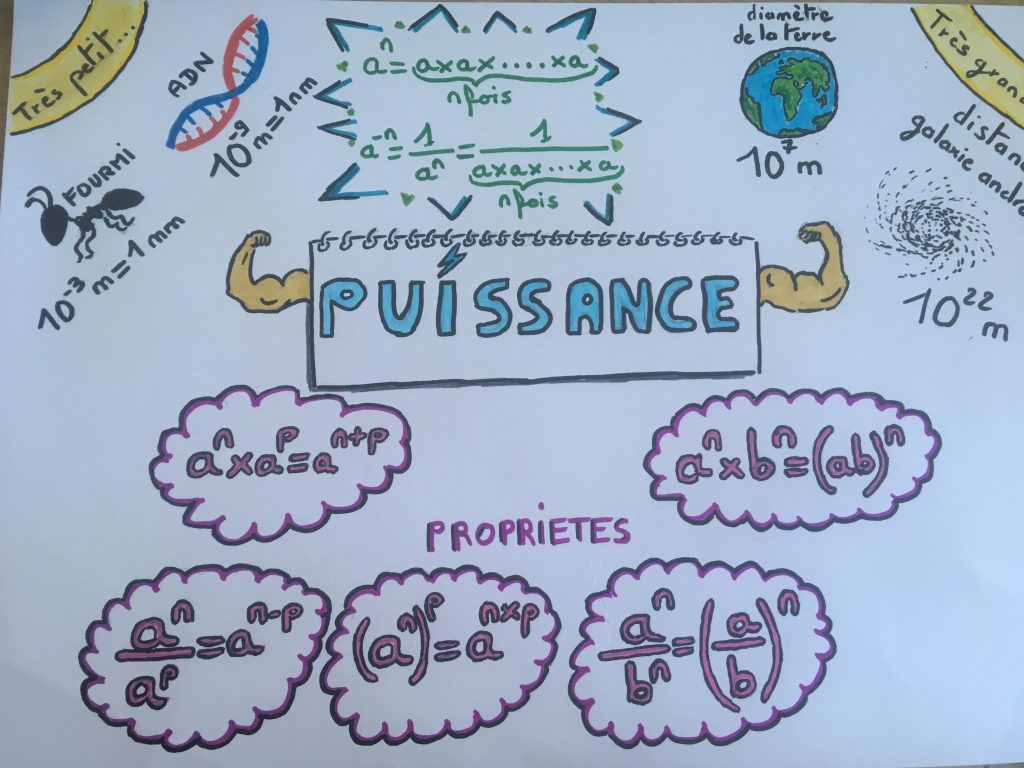 Très petit...
ADN
10⁻⁹ m = 1 nm
FOURMI
10⁻³ m = 1 mm
aⁿ = a x a x .... x a
n fois
a⁻ⁿ = 1/aⁿ = 1/(a x a x ... x a)
n fois
diamètre
de la terre
10⁷ m
Très
galaxie
10²² m
PUISSANCE
aⁿ x aᵖ = aⁿ⁺ᵖ
aⁿ x bⁿ = (ab)ⁿ
PROPRIETES
aⁿ/aᵖ = aⁿ⁻ᵖ
(aⁿ)ᵖ = aⁿˣᵖ
aⁿ/bⁿ = (a/b)ⁿ